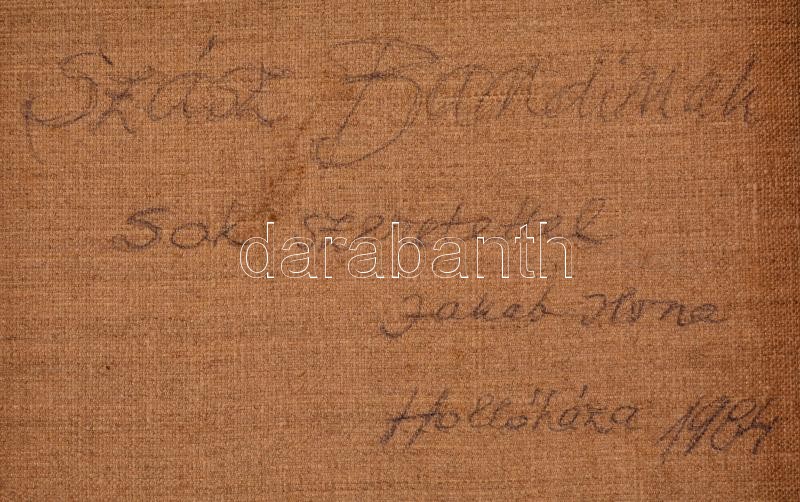 Szász Bandinak
Sok szeretettel
darabanth
Jakab Ilona
Hollóháza 1984